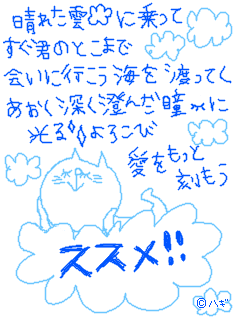 晴れた雲に乗って
すぐ君のとこまで
会いに行こう海を渡ってく
あおく深く澄んだ瞳に
光るよろこび
愛をもっと
刻もう
ススメ!!
©ハギ